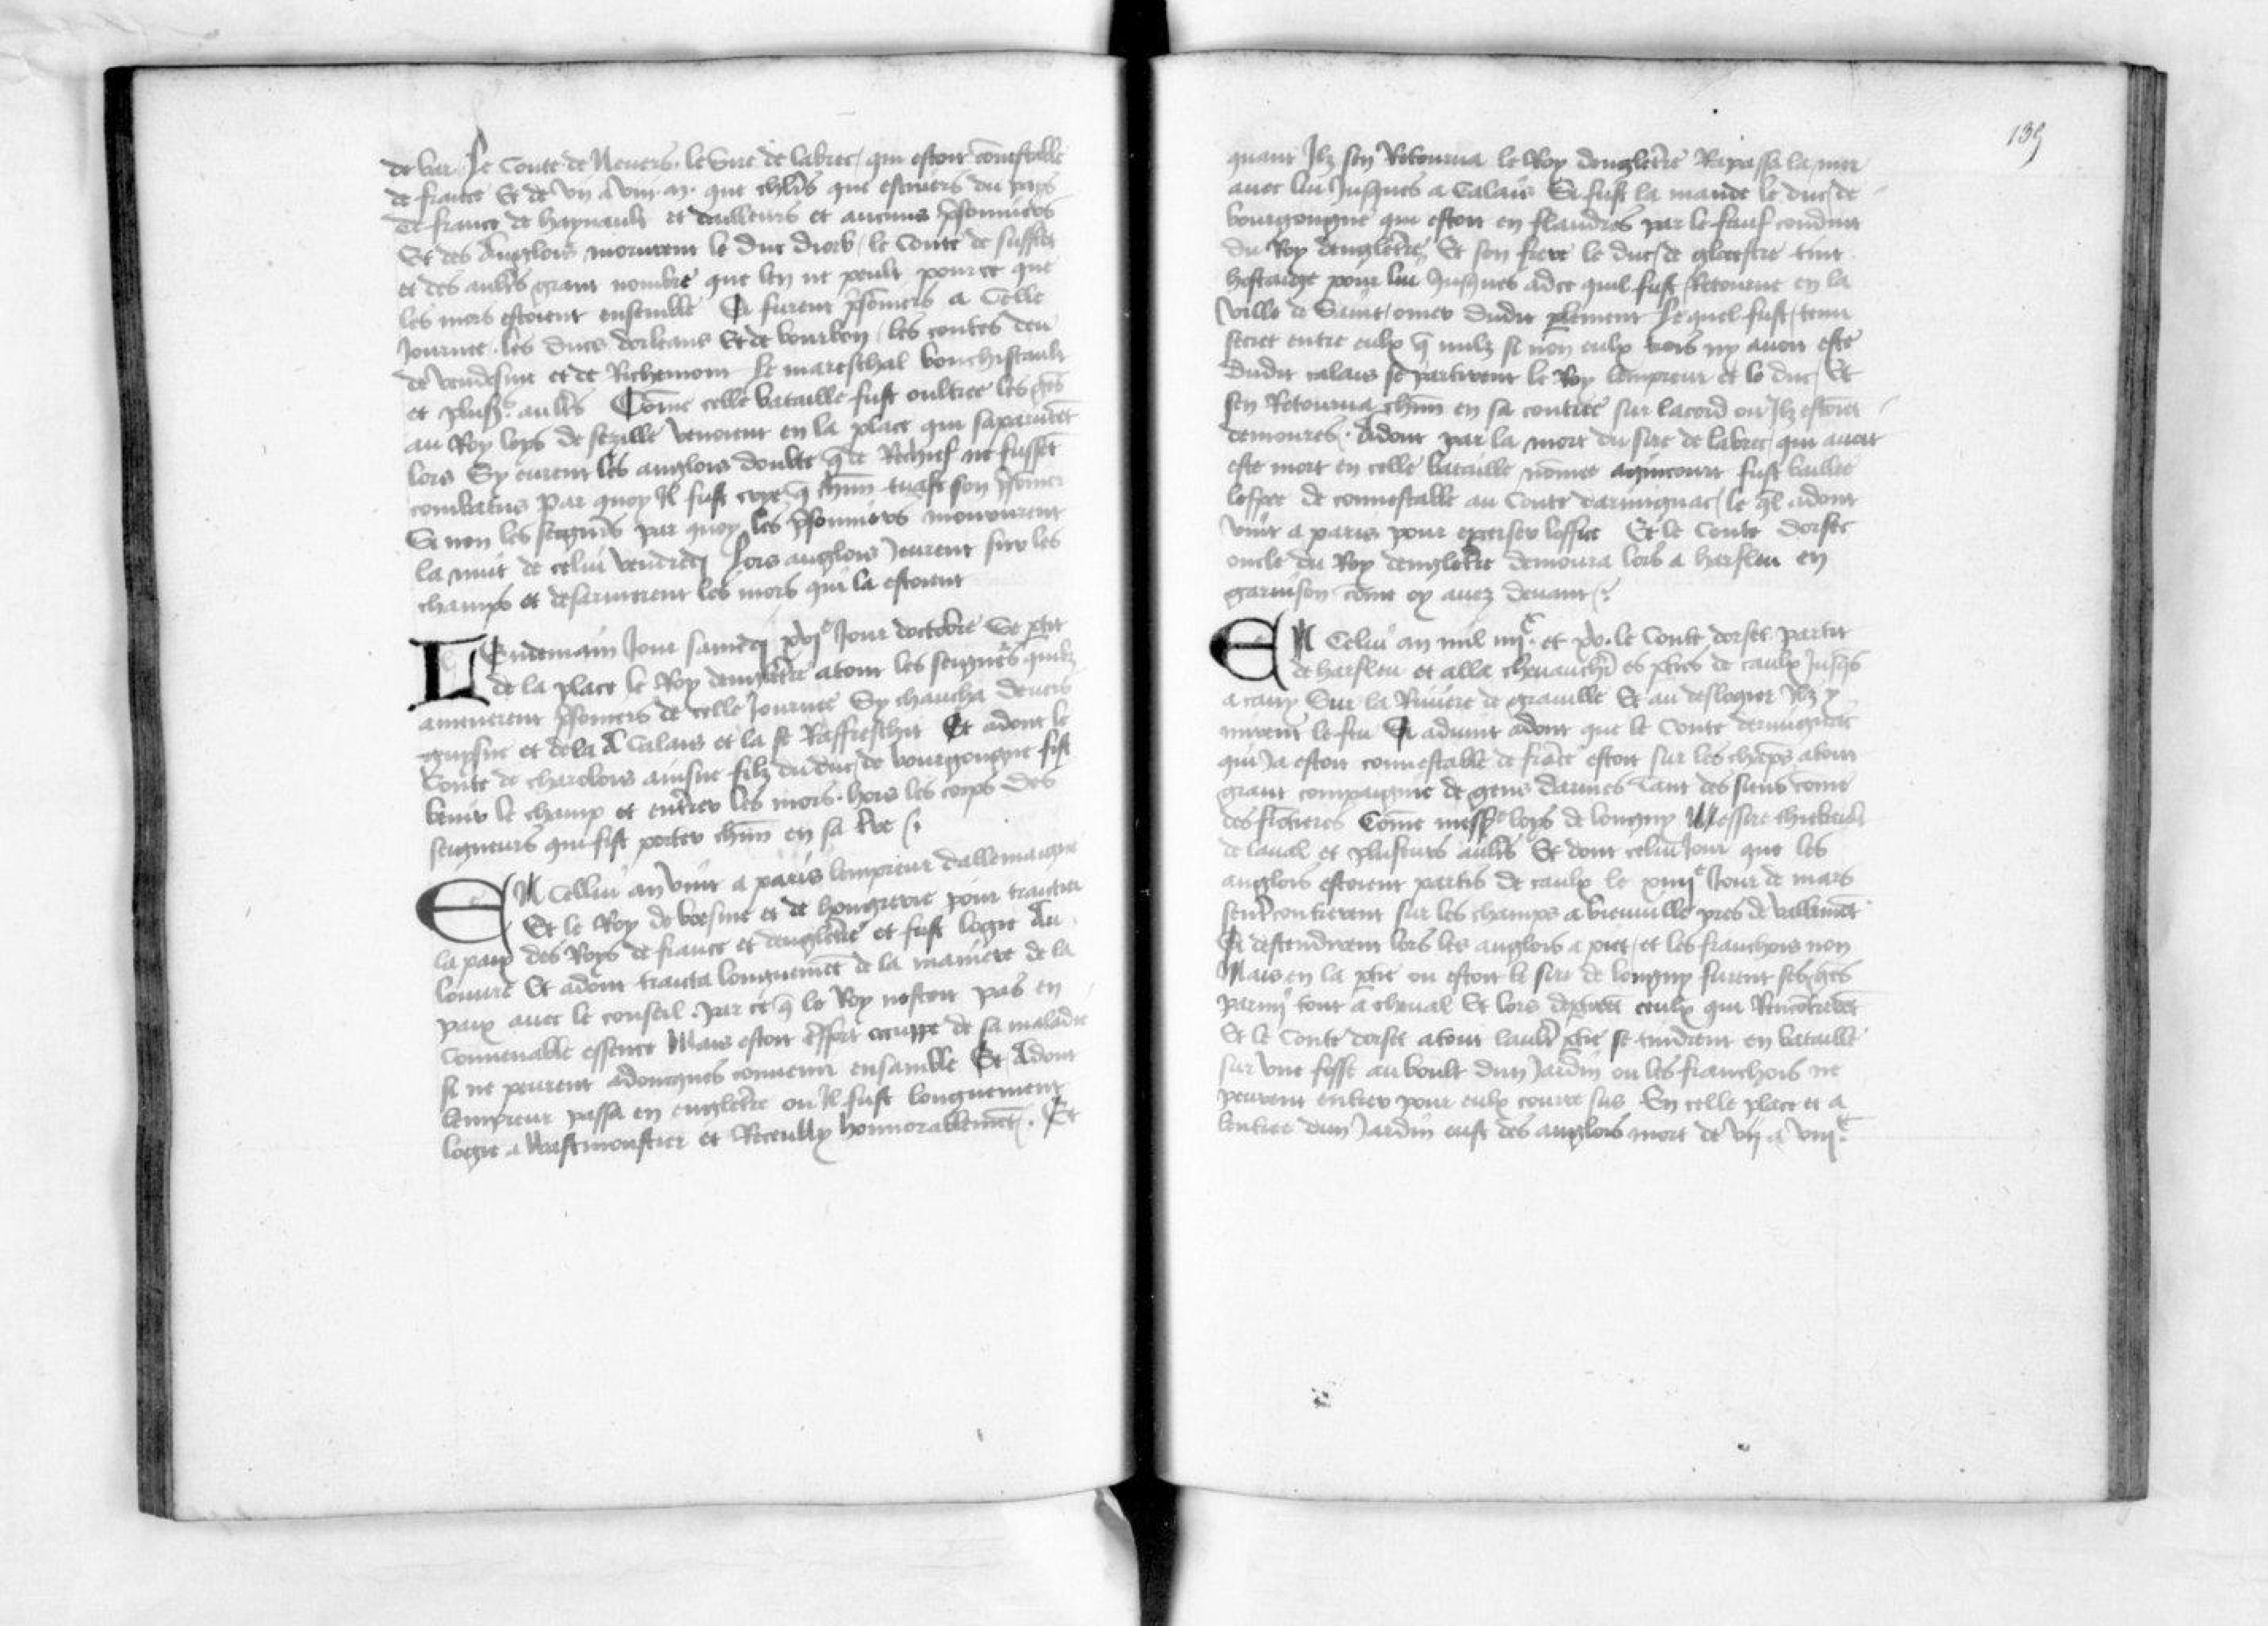 de bar Le Conte de Neuers. le sire de labret / qui estoit cōnestable
de france Et de vij a viij. m. que chlrs que escuiers du pays
de france de haynault et dailleurs et aucuns prsonniers
Et des Anglois morurent le duc diorb / le Conte de suffort
et des aultrs grant nombre que len ne peult pource que
les mors estoient ensemble Si furent prsoniers a Celle
Journee. les ducs dorleans Et de bourbon / les contes deu
de vendosme et de Richemont Le mareschal bouchicault
et plusrs. aultrs Cōme celle bataille fust oultree les gēs
au Roy loys de sezille venoient en la place qui saparurēt
lors Sy eurent les anglois doubte q̄ de Rechief ne fussēt
combatus Par quoy Il fust crye q̄ chūn tuast son prsonier
Si non les seignrs par quoy les prsonniers moururent
la nuit de celui vendredj Lors anglois Jeurent sur les
champs et desarmerent les mors qui la estoient
LEndemain Jour samedj xxvje Jour doctobre Se ptit
de la place le Roy dengletrre atout les seignrs quilz
amenerent prsoniers de celle Journee Sy chaucha deuers
guysne et dela A Calais et la se Raffreschit Et adont le
Conte de charolois ainsne filz du duc de bourgongne fist
benir le champ et entrrer les mors. hors les corps des
seigneurs qui fist porter chūn en sa trre
EN Celluj an vint a paris lempreur dallemaigne
Et le Roy de boesme et de hongrerie pour traictier
la paix des Roys de france et dengletrre et fust logie Au
louure Et adont traicta longuemēt de la maniere de la
paix auec le conseil. par ce q̄ le Roy nestoit pas en
Conuenable essence Mais estoit occuppe de sa maladie
si ne peurent adoncques conuenir ensamble Et Adont
lempreur passa en engletrre ou Il fust longuement
logie a Westmonstier et Receully honnorablemēt. Et
139
quant Ilz sen Retourna le Roy dengletrre Rapassa la mer
auec lui Jusques a Calais Si fust la mande le duc de
bourgongne qui estoit en flandres par le sauf conduit
du Roy dengletrre Et son frere le duc de glocestre tint
hostaige pour lui Jusques adce quil fust Retourne en la
ville de Saint omer dudit plement Lequel fust tenu
secret entre eulx q̄ nulz si non eulx trois ny auoit este
Dudit calais se partirent le Roy lempreur et le duc / Et
sen Retourna chūn en sa contree sur lacord ou Ilz estoiēt
demoures. Adont par la mort du sire de labret qui auoit
este mort en celle bataille nōmee agincourt fust baillee
lespee de connestable au Conte darmignac / le ql adont
vint a paris pour excerser loffice Et le Conte dorset
oncle du Roy dengletrre demoura lors a harfleu en
garnison cōme oy auez deuant
EN Celui an mil iiijc. et xv. le Conte dorset partit
de harfleu et alla cheuauchr es pties de caulx Jusqs
a cany Sur la Riuiere de grauille Et au deslogier Ilz y
mirent le feu Si aduint adont que le Conte dermignac
qui Ja estoit connestable de frāce estoit sur les chāps atout
grant compaignie de gens darmes Tant des siens cōme
des frōtieres Cōme messre loys de longny Messire
de laual et plusieurs aultrs Et dont celui Jour que les
anglois estoient partis de caulx le xiiije Jour de mars
sentrcontrerent sur les champs a vieuuille pres de vallemōt
Si descendirent lors les anglois a piet / et les franchois non
Mais en la ptie ou estoit le sire de longny furent ses gēs
parmi tout a cheual Et lors ceulx qui Rencōtrerēt
Et le Conte dorset atout laultr ptie se tindrent en bataille
sur vne fosse au boult dun Jardin ou les franchois ne
peurent entrer pour eulx courre sus En celle place et a
lentree dun Jardin eust des anglois mort de vij a viijc